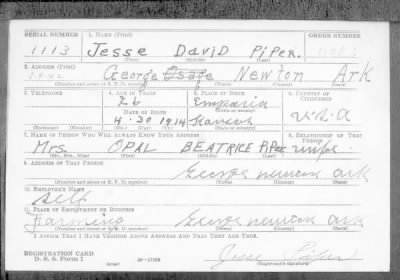 SERIAL NUMBER 1. NAME (Print) ORDER NUMBER
1113 Jesse David Piper.
(First) (Middle) (Last)
2. ADDRESS (Print)
George Osage Newton Ark
(Number and street or R. F. D. number) (Town) (County) (State)
3. TELEPHONE 4. AGE IN YEARS 5. PLACE OF BIRTH 6. COUNTRY OF CITIZENSHIP
26 Emporia
DATE OF BIRTH (Town or county)
4 30 1914 Kansas U.S.A
(Exchange) (Number) (Mo.) (Day) (Yr.) (State or country)
7. NAME OF PERSON WHO WILL ALWAYS KNOW YOUR ADDRESS 8. RELATIONSHIP OF THAT PERSON
Mrs. OPAL BEATRICE PIPER wife
(Mr., Mrs., Miss) (First) (Middle) (Last)
9. ADDRESS OF THAT PERSON
George newton ark
(Number and street or R. F. D. number) (Town) (County) (State)
10. EMPLOYER'S NAME
Self
11. PLACE OF EMPLOYMENT OR BUSINESS
Farming George newton ark
(Number and street or R. F. D. number) (Town) (County) (State)
I AFFIRM THAT I HAVE VERIFIED ABOVE ANSWERS AND THAT THEY ARE TRUE.
REGISTRATION CARD
D. S. S. Form 1 (over) Jesse Piper
(Registrant's signature)